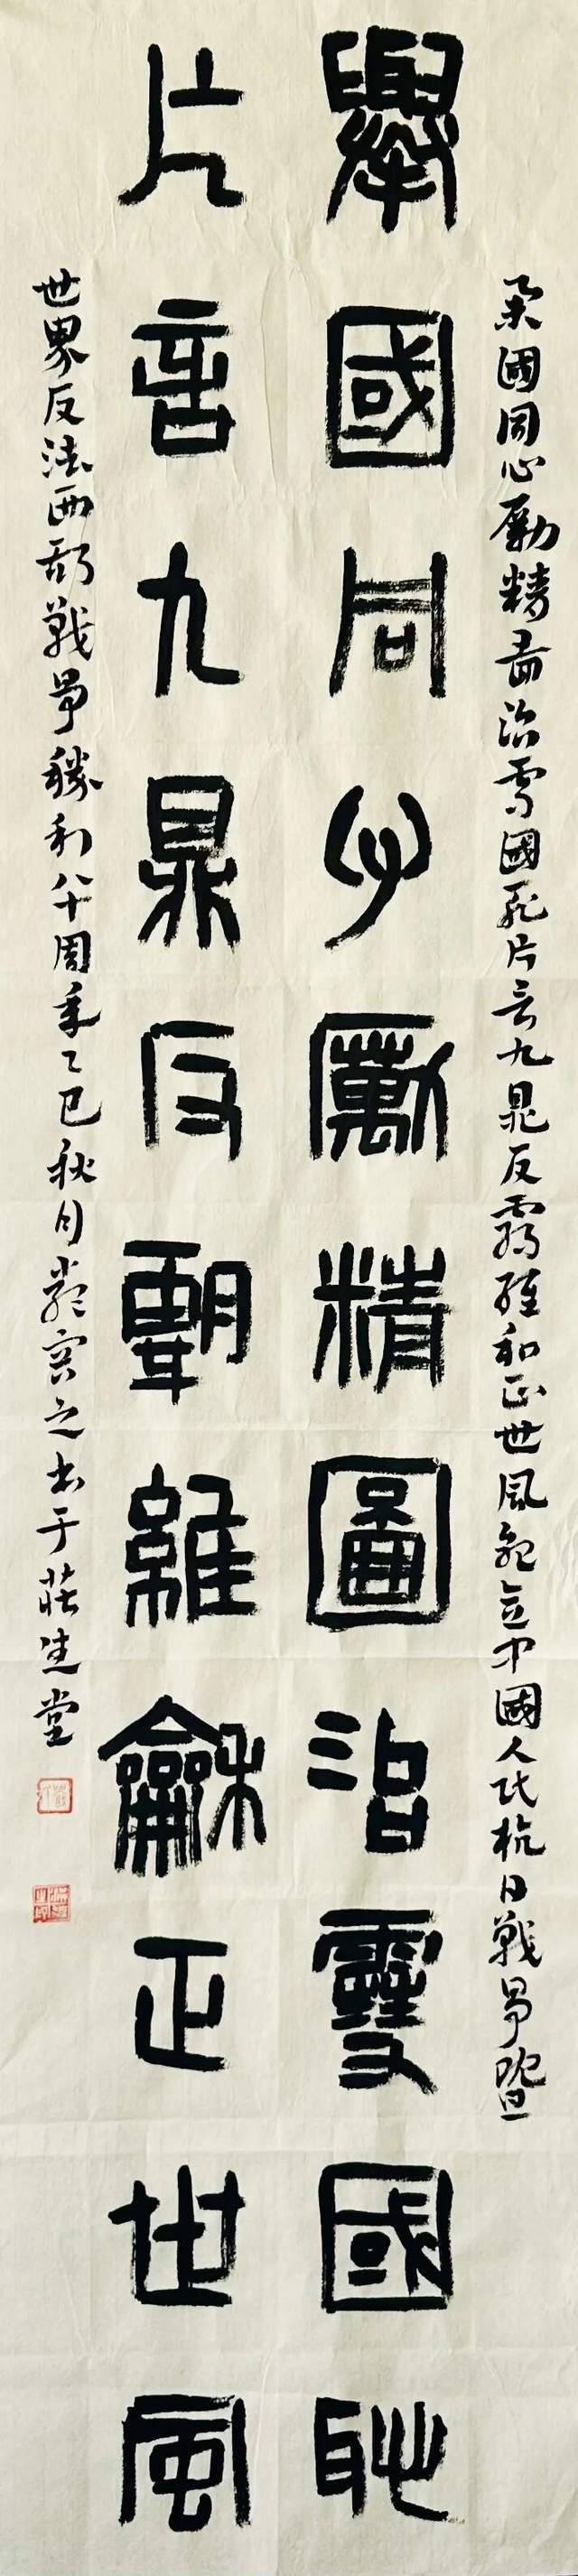 舉國同心勵精圖治雪國恥
片言九鼎反霸維龢正世風
舉國同心勵精圖治雪國恥片言九鼎反霸維和正世風 中國人民抗日戰爭暨
世界反法西斯戰爭勝利八十周年乙巳秋月 之書于莊生堂